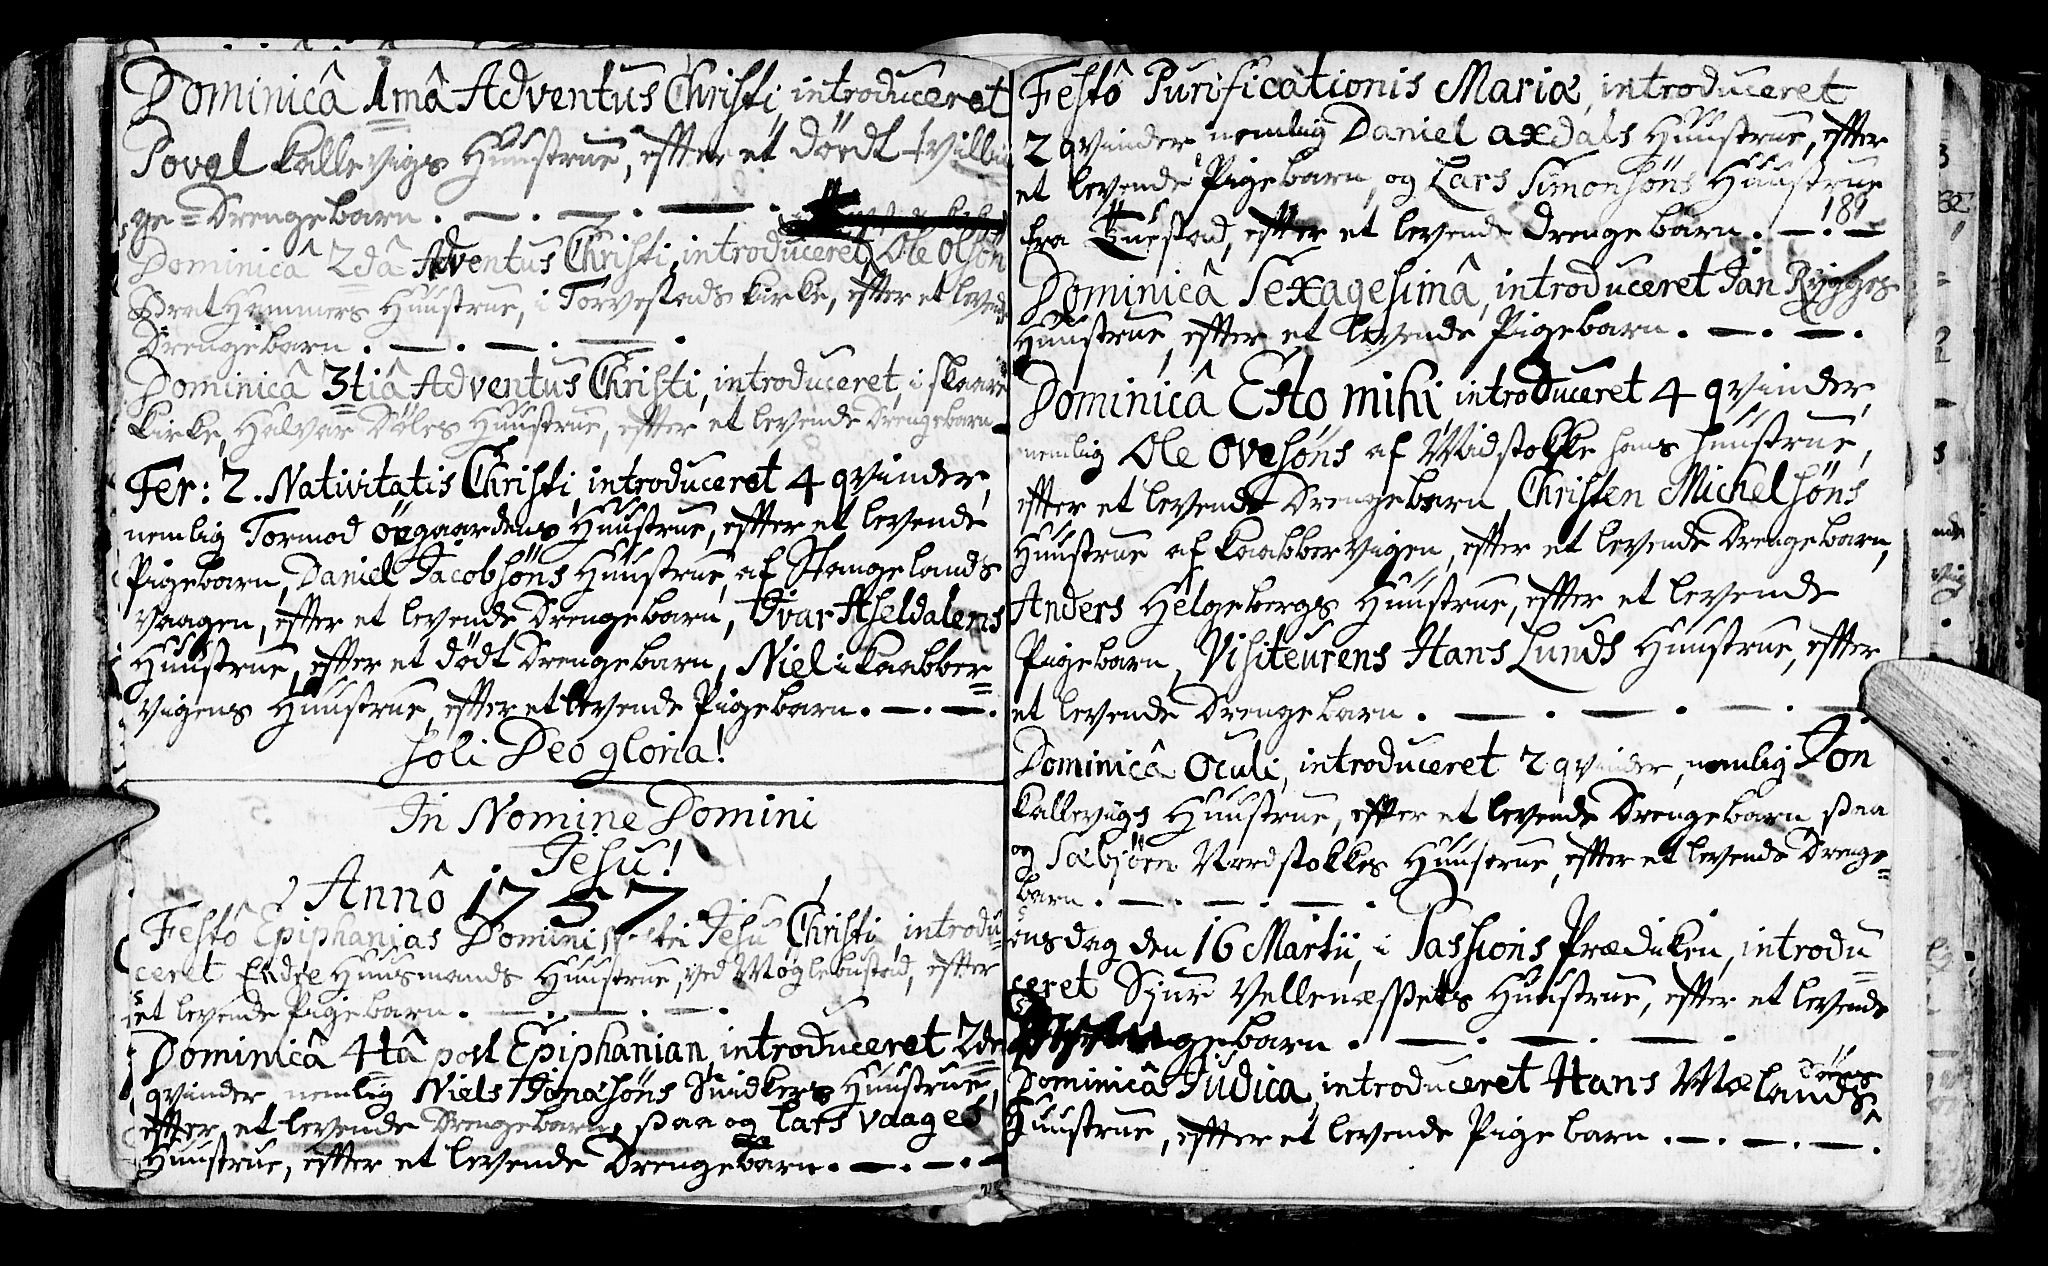 Dominicâ 1mâ Adventus Christi, introduceret
Povel Kallevigs Huustrue, effter et dödt tvillin
ge=Drengebarn. — . — . — .
Dominicâ 2dâ Adventus Christi, introduceret, Ole Olsön
Hammers Huustrue, i Torvestads Kirke, effter et levende
Drengebarn . — . — . — .
Dominicâ 3tiâ Adventus Christi, introduceret, i Skaare
Kirke, Halvar Döles Huustrue, effter et levende Drengebarn.
Fer: 2. Nativitatis Christi, introduceret 4 qvinder,
nemlig Tormod Öegaardens Huustrue, effter et levende
Pigebarn, Daniel Jacobsöns Huustrue, af Stangelands
Vaagen, effter et levende Drengebarn, Ivar Aseldalens
Huustrue, effter et dödt Drengebarn, Niels i Kaabber=
vigens Huustrue, effter et levende Pigebarn. — . — .
Soli Deo gloria!
In Nomine Domini
Jesu!
Annô 1757
Festô Epiphanias Domini nostri Jesu Christi, introdu=
ceret Endre Huusmands Huustrue, ved Moglebustad, effter
et levende Pigebarn . — . — . — .
Dominicâ 4tâ post Epiphanian, introduceret 2de
qvinder, nemlig Niels Jonasöns Snidkers Huustrue,
effter et levende Drengebarn, saa og Lars Vaages
Huustrue, effter et levende Drengebarn. — . — . —
Festô Purificationis Mariæ, introduceret
2 qvinder nemlig Daniel Axdals Huustrue, effter
et levende Pigebarn, og Lars Simonsöns Huustrue
181
fra Questad, effter et levende Drengebarn. — . —
Dominicâ Sexagesimâ, introduceret Jan Rygges
Huustrue, effter et levende Pigebarn. — . — .
Dominicâ Esto mihi, introduceret 4 qvinder,
nemlig Ole Ovesöns af Midstokke hans huustrue,
effter et levende Drengebarn, Christen Michelsöns
Huustrue af Kaabbervigen, effter et levende Drengebarn,
Anders Helgebergs Huustrue, effter et levende
Pigebarn, Visiteurens Hans Lunds Huustrue, effter
et levende Drengebarn . — . — . —
Dominicâ Oculi, introduceret 2 qvinder, nemlig Jon
Kallevigs Huustrue, effter et levende Drengebarn saa
og Sæbjörn Nordstokkes Huustrue, effter et levende Drenge=
barn . — . — . — .
Onsdag den 16 Martii, i Passions Prædiken, introdu=
ceret Sjur Vellenæssets Huustrue, effter et levende
gebarn . — . — . — .
Dominicâ Judica, introduceret Hans Mælands
döens
Huustrue, effter et levende Pigebarn . — . — . — .